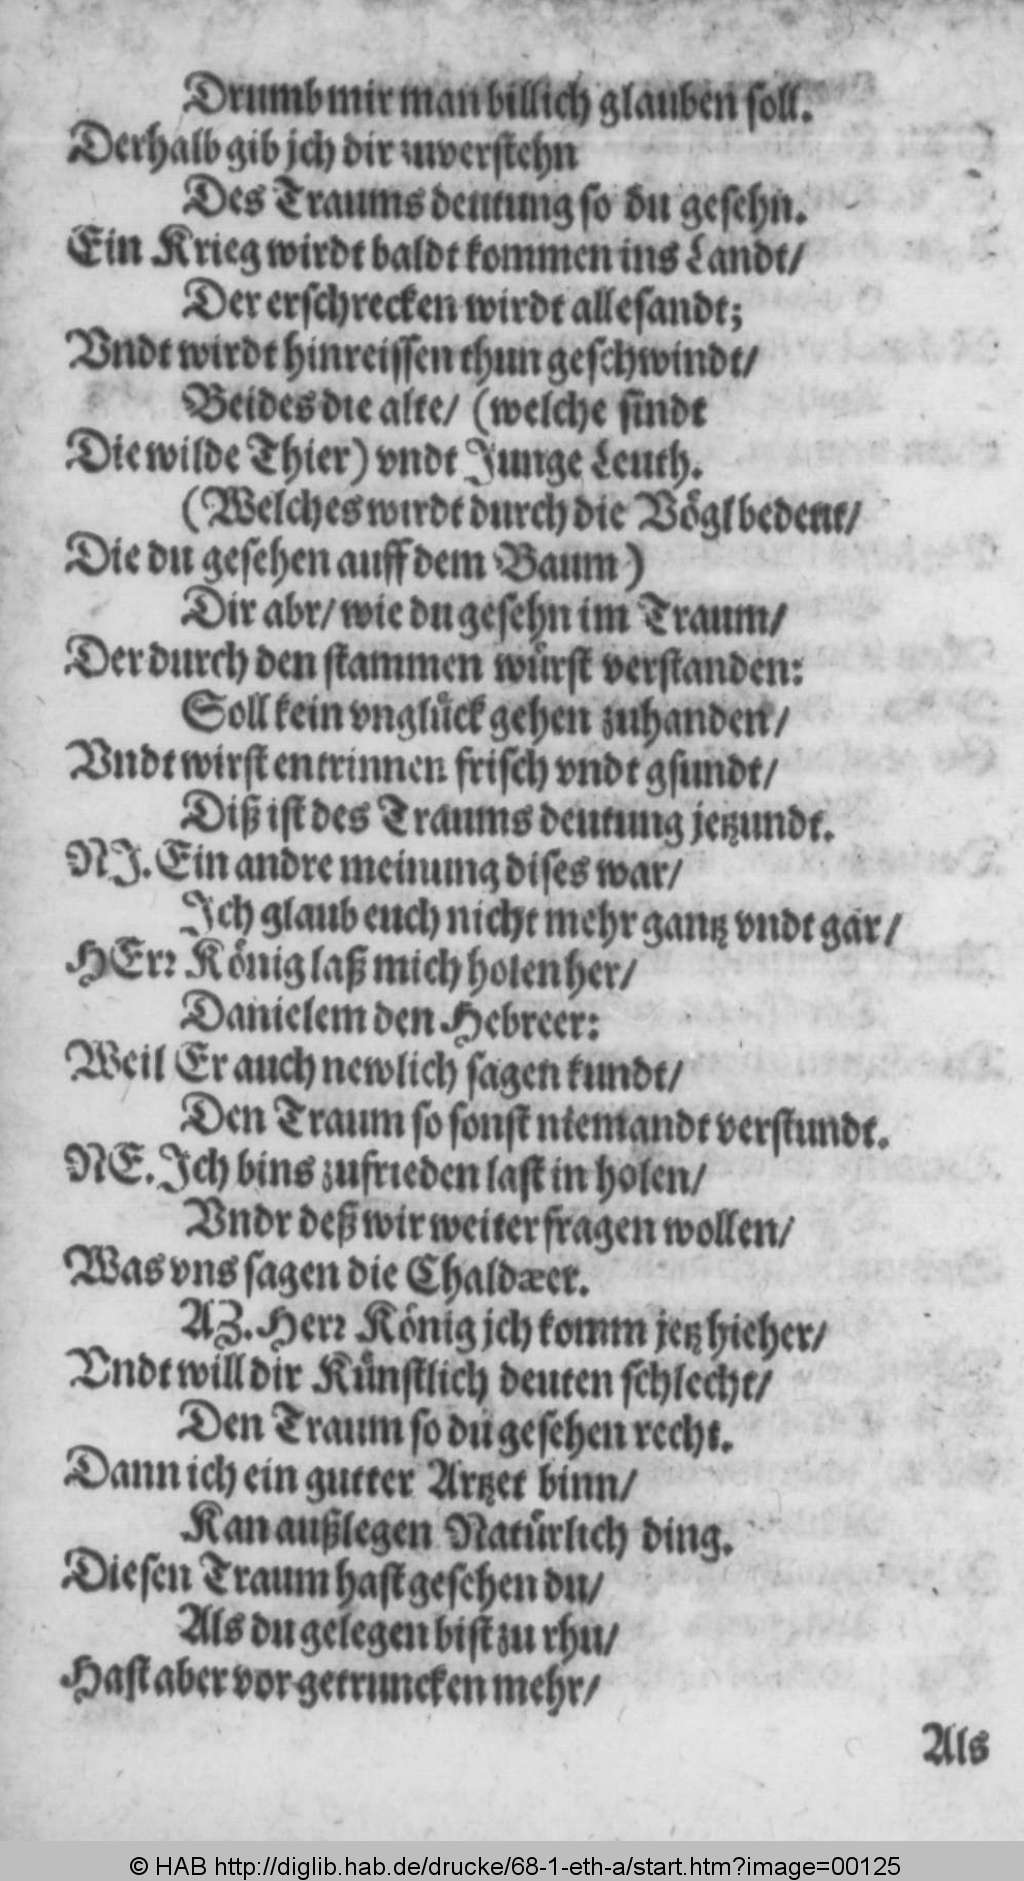 Drumb mir man billich glauben soll.
Derhalb gib jch dir zuverstehn
Des Traums deutung so du gesehn.
Ein Krieg wirdt baldt kommen ins Landt/
Der erschrecken wirdt allesandt;
Vndt wirdt hinreissen thun geschwindt/
Beides die alte/ (welche sindt
Die wilde Thier) vndt Junge Leuth.
(Welches wirdt durch die Vögl bedeut/
Die du gesehen auff dem Baum)
Dir abr/ wie du gesehn im Traum/
Der durch den stammen würst verstanden:
Soll kein vnglück gehen zuhanden/
Vndt wirst entrinnen frisch vndt gsundt/
Diß ist des Traums deutung jetzundt.
NJ. Ein andre meinung dises war/
Jch glaub euch nicht mehr gantz vndt gar/
HErr König laß mich holen her/
Danielem den Hebreer:
Weil Er auch newlich sagen kundt/
Den Traum so sonst niemandt verstundt.
NE. Jch bins zufrieden last in holen/
Vndr deß wir weiter fragen wollen/
Was vns sagen die Chaldæer.
AZ. Herr König jch komm jetz hieher/
Vndt will dir Künstlich deuten schlecht/
Den Traum so du gesehen recht.
Dann ich ein gutter Artzet binn/
Kan außlegen Natürlich ding.
Diesen Traum hast gesehen du/
Als du gelegen bist zu rhu/
Hast aber vor getruncken mehr/
Als
© HAB http://diglib.hab.de/drucke/68-1-eth-a/start.htm?image=00125